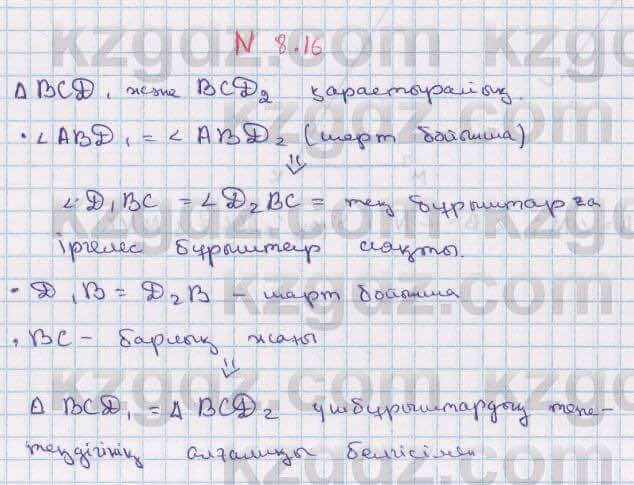 N 8.16
Δ BCD₁ және BCD₂ қарастыралық.
• ∠ABD₁ = ∠ABD₂ (шарт бойынша)
⇓
∠D₁BC = ∠D₂BC = тең бұрыштарға
іргелес бұрыштар сияқты.
• D₁B = D₂B – шарт бойынша
• BC – барлық жағы
⇓
Δ BCD₁ = Δ BCD₂ үшбұрыштардың тепе-
теңдігінің алғашқы белгісінен
kzgdz.com